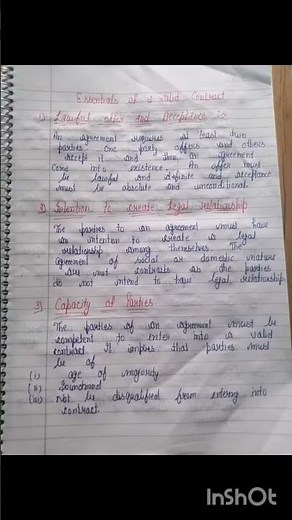 Essentials of a valid Contract
1) Lawful offer and Acceptance :-
An agreement requires at least two
parties one party offers and others
accept it and then an agreement
Come into existence. An offer must
be lawful and definite and acceptance
must be absolute and unconditional.
2) Intention to create Legal relationship
The parties to an agreement must have
an intention to create a legal
relationship among themselves. The
agreement of social or domestic nature
are not contracts as the parties
do not intend to have legal relationship
3) Capacity of Parties
The parties of an agreement must be
competent to enter into a valid
contract. It implies that parties must
be of
(i) age of majority
(ii) Soundmind
(iii) Not be disqualified from entering into
contract.
InShOt